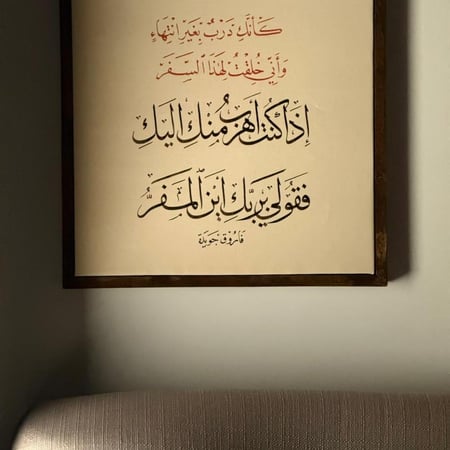 كَأَنَّكِ دَرْبٌ بِغَيْرِ انْتِهَاءٍ
وَأَنِّي خُلِقْتُ لِهَذَا السَّفَرْ
إِذَا كُنْتُ أَهْرُبُ مِنْكِ إِلَيْكِ
فَقُولِي بِرَبِّكِ أَيْنَ الْمَفَرُّ
فَارُوق جُوَيْدَة